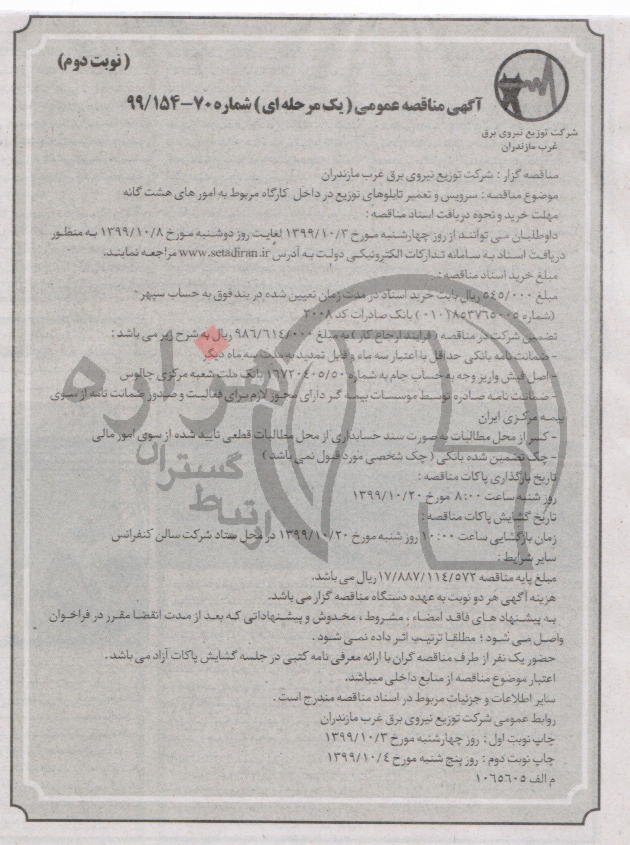 (نوبت دوم)
آگهی مناقصه عمومی (یک مرحله ای) شماره ۷۰-۹۹/۱۵۴
شرکت توزیع نیروی برق
غرب مازندران
مناقصه گزار : شرکت توزیع نیروی برق غرب مازندران
موضوع مناقصه : سرویس و تعمیر تابلوهای توزیع در داخل کارگاه مربوط به امور های هشت گانه
مهلت خرید و نحوه دریافت اسناد مناقصه :
داوطلبان می توانند از روز چهارشنبه مورخ ۱۳۹۹/۱۰/۳ لغایت روز دوشنبه مورخ ۱۳۹۹/۱۰/۸ به منظور
دریافت اسناد به سامانه تدارکات الکترونیکی دولت به آدرس www.setadiran.ir مراجعه نمایند.
مبلغ خرید اسناد مناقصه :
مبلغ ۵۴۵/۰۰۰ ریال بابت خرید اسناد در مدت زمان تعیین شده در بند فوق به حساب سپهر
(شماره ۰۱۰۱۸۵۳۷۶۵۰۰۵) بانک صادرات کد ۲۰۰۸
تضمین شرکت در مناقصه (فرایند ارجاع کار) به مبلغ ۹۸۶/۶۱۴/۰۰۰ ریال به شرح زیر می باشد :
- ضمانت نامه بانکی حداقل با اعتبار سه ماه و قابل تمدید به مدت سه ماه دیگر
- اصل فیش واریز وجه به حساب جام به شماره ۱۶۷۲۰۴۰۵/۵۰ بانک ملت شعبه مرکزی چالوس
- ضمانت نامه صادره توسط موسسات بیمه گر دارای مجوز لازم برای فعالیت و صدور ضمانت نامه از سوی
بیمه مرکزی ایران
- کسر از محل مطالبات به صورت سند حسابداری از محل مطالبات قطعی تایید شده از سوی امور مالی
- چک تضمین شده بانکی (چک شخصی مورد قبول نمی باشد)
تاریخ بارگذاری پاکات مناقصه :
روز شنبه ساعت ۸:۰۰ مورخ ۱۳۹۹/۱۰/۲۰
تاریخ گشایش پاکات مناقصه :
زمان بازگشایی ساعت ۱۰:۰۰ روز شنبه مورخ ۱۳۹۹/۱۰/۲۰ در محل ستاد شرکت سالن کنفرانس
سایر شرایط :
مبلغ پایه مناقصه ۱۷/۸۸۷/۱۱۴/۵۷۲ ریال می باشد.
هزینه آگهی هر دو نوبت به عهده دستگاه مناقصه گزار می باشد.
به پیشنهاد های فاقد امضاء ، مشروط ، مخدوش و پیشنهاداتی که بعد از مدت انقضا مقرر در فراخوان
واصل می شود ؛ مطلقا ترتیب اثر داده نمی شود .
حضور یک نفر از طرف مناقصه گران با ارائه معرفی نامه کتبی در جلسه گشایش پاکات آزاد می باشد .
اعتبار موضوع مناقصه از منابع داخلی میباشد.
سایر اطلاعات و جزئیات مربوط در اسناد مناقصه مندرج است .
روابط عمومی شرکت توزیع نیروی برق غرب مازندران
چاپ نوبت اول : روز چهارشنبه مورخ ۱۳۹۹/۱۰/۳
چاپ نوبت دوم : روز پنج شنبه مورخ ۱۳۹۹/۱۰/۴
م الف ۱۰۶۵۶۰۵
هزاره
گستران
ارتباط